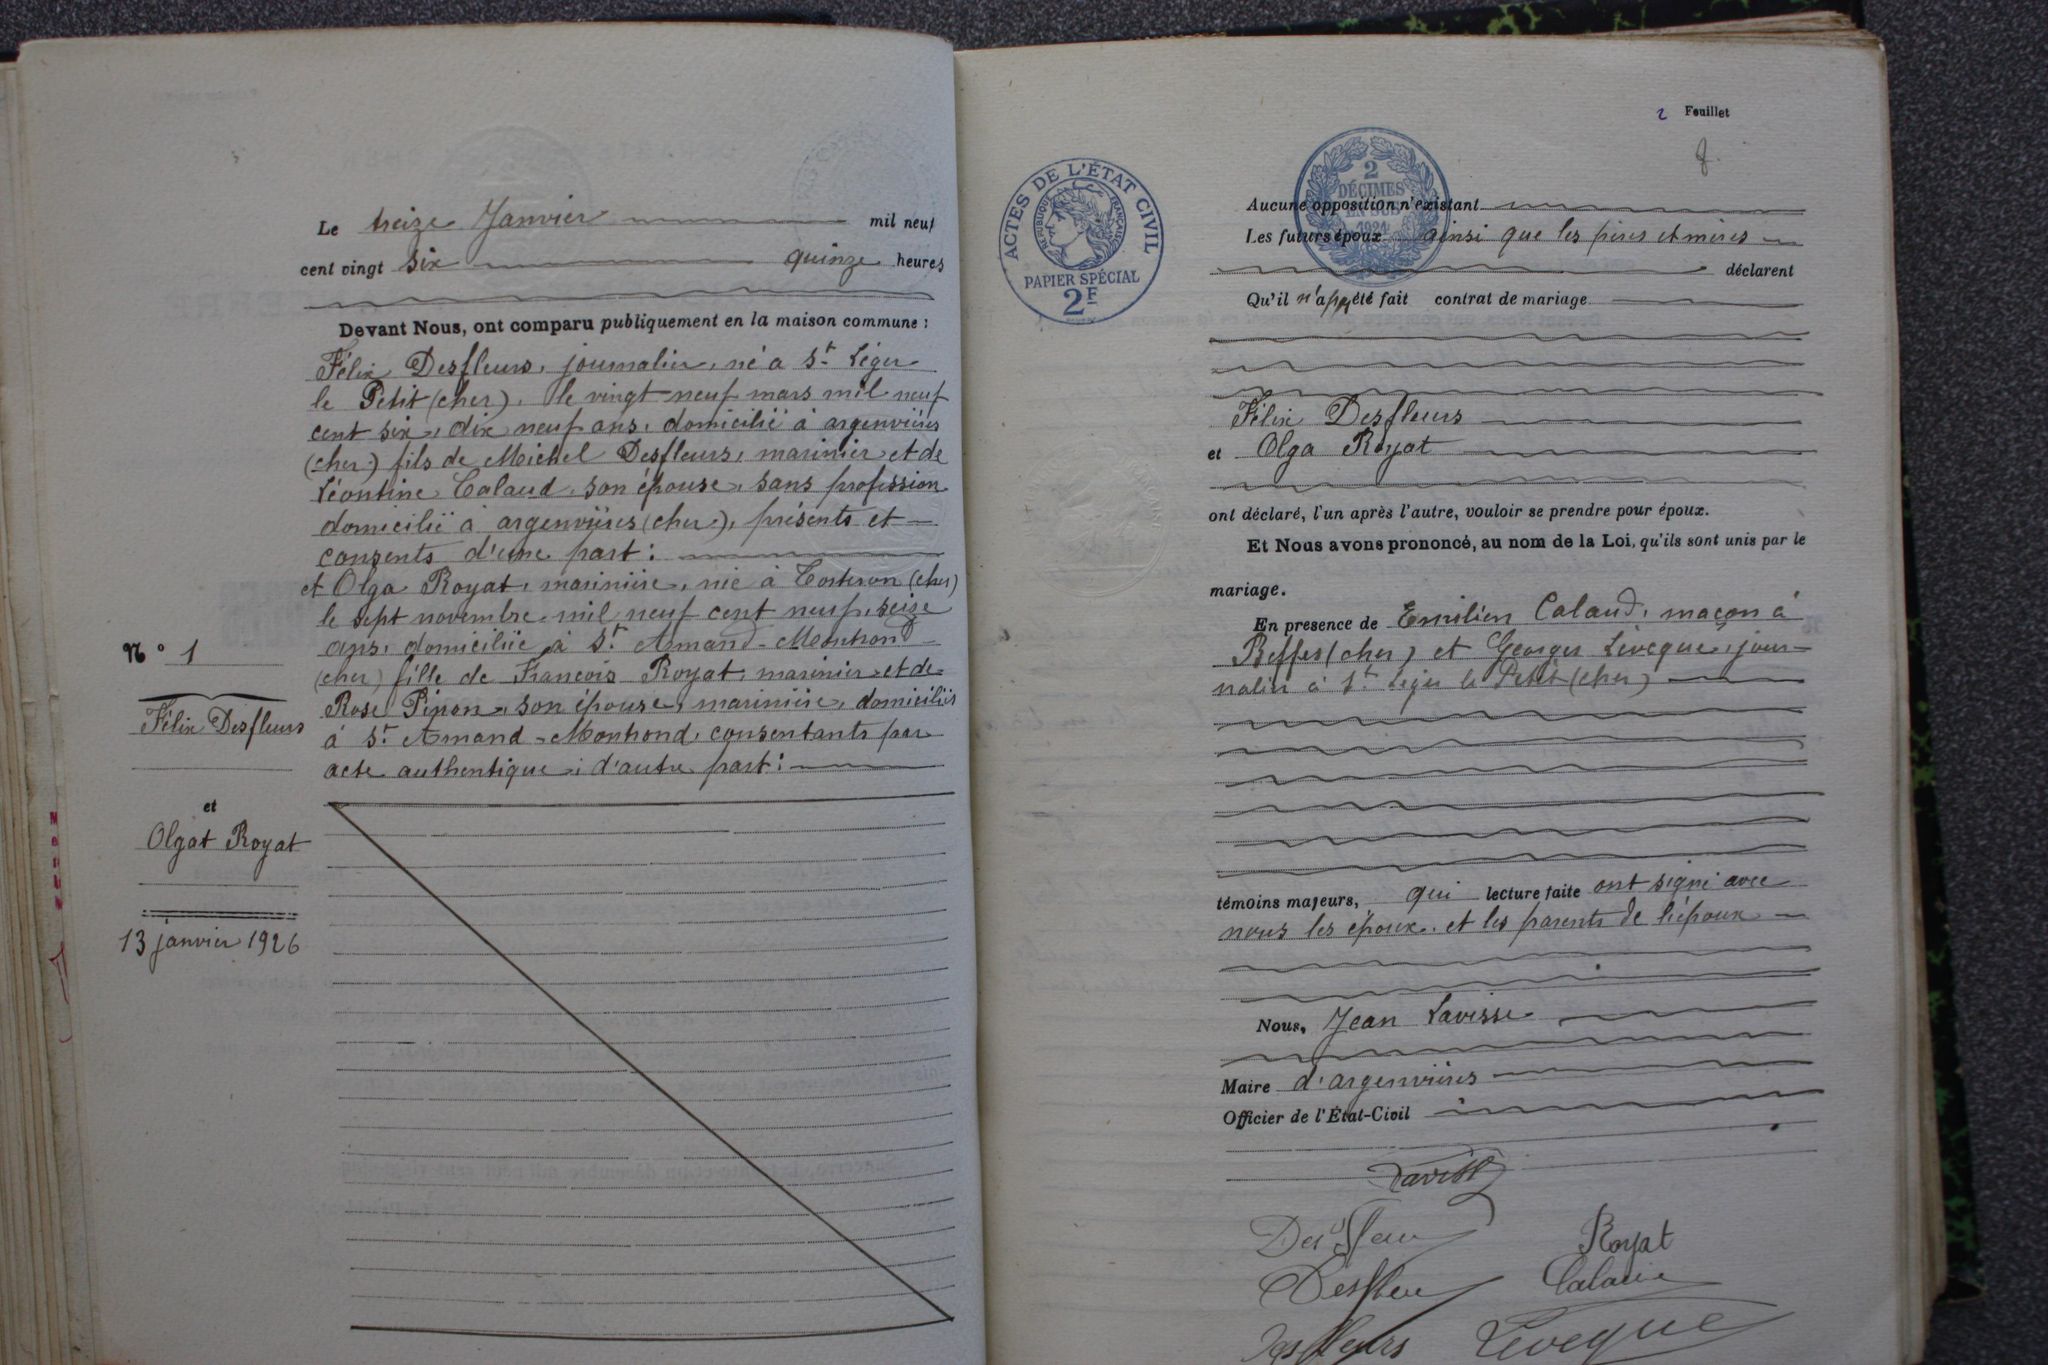 Le treize Janvier mil neuf
cent vingt six quinze heures
Devant Nous, ont comparu publiquement en la maison commune :
Félix Desfleurs, journalier, né à St Léger
le Petit (cher), le vingt neuf mars mil neuf
cent six, dix neuf ans, domicilié à argenvières
(cher) fils de Michel Desfleurs, marinier et de
Léontine Calaud, son épouse, sans profession
domicilié à argenvières (cher), présents et
consents d'une part :
et Olga Royat, marinière, née à Torteron (cher)
le sept novembre mil neuf cent neuf, seize
ans, domiciliée à St Amand-Montrond
(cher) fille de Francois Royat, marinier et de
Rose Pinon, son épouse, marinière, domiciliés
à St Amand-Montrond, consentants par
acte authentique ; d'autre part :
N° 1
Félix Desfleurs
et
Olgat Royat
13 janvier 1926
2 Feuillet
8.
ACTES DE L'ÉTAT CIVIL
RÉPUBLIQUE FRANÇAISE
PAPIER SPÉCIAL
2F
2
DÉCIMES
EN SUS
1921
Aucune opposition n'existant
Les futurs époux ainsi que les pères et mères
déclarent
Qu'il n'a pas été fait contrat de mariage
Félix Desfleurs
et Olga Royat
ont déclaré, l'un après l'autre, vouloir se prendre pour époux.
Et Nous avons prononcé, au nom de la Loi, qu'ils sont unis par le
mariage.
En presence de Emilien Calaud, maçon à
Beffes (cher) et Georges Lévèque, jour-
nalier à St Léger le Petit (cher)
témoins majeurs, qui lecture faite ont signé avec
nous les époux et les parents de l'époux
Nous, Jean Lavisse
Maire d'argenvières
Officier de l'État-Civil
Lavisse
Royat
Desfleurs Lévèque